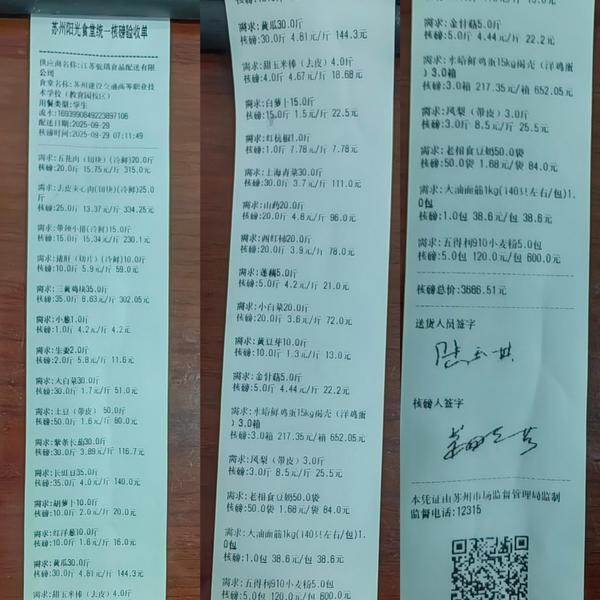 苏州阳光食堂统一核磅验收单
食品配送有限
公司
食堂名称:苏州建设交通高等职业技
术学校(教育园校区)
用餐类型:学生
流水:1693990849223897106
配送日期:2025-09-29
核磅时间:2025-09-29 07:11:49
需求:五花肉(切块)(冷鲜)20.0斤
核磅:20.0斤 15.75元/斤 315.0元
需求:去皮夹心肉(切块)(冷鲜)25.0
斤
核磅:25.0斤 13.37元/斤 334.25元
需求:带颈小排(冷鲜)15.0斤
核磅:15.0斤 15.34元/斤 230.1元
需求:猪肝(切片)(冷鲜)10.0斤
核磅:10.0斤 5.9元/斤 59.0元
需求:三黄鸡块35.0斤
核磅:35.0斤 8.63元/斤 302.05元
需求:小葱1.0斤
核磅:1.0斤 4.2元/斤 4.2元
需求:生姜2.0斤
核磅:2.0斤 5.8元/斤 11.6元
需求:大白菜30.0斤
核磅:30.0斤 1.7元/斤 51.0元
需求:土豆(带皮) 50.0斤
核磅:50.0斤 1.6元/斤 80.0元
需求:紫条长茄30.0斤
核磅:30.0斤 3.89元/斤 116.7元
需求:长豇豆35.0斤
核磅:35.0斤 4.0元/斤 140.0元
需求:胡萝卜10.0斤
核磅:10.0斤 2.0元/斤 20.0元
需求:红洋葱10.0斤
核磅:10.0斤 1.6元/斤 16.0元
需求:黄瓜30.0斤
核磅:30.0斤 4.81元/斤 144.3元
需求:甜玉米棒(去皮)4.0斤
需求:黄瓜30.0斤
核磅:30.0斤 4.81元/斤 144.3元
需求:甜玉米棒(去皮)4.0斤
核磅:4.0斤 4.67元/斤 18.68元
需求:白萝卜15.0斤
核磅:15.0斤 1.5元/斤 22.5元
需求:红杭椒1.0斤
核磅:1.0斤 7.78元/斤 7.78元
需求:上海青菜30.0斤
核磅:30.0斤 3.7元/斤 111.0元
需求:山药20.0斤
核磅:20.0斤 4.8元/斤 96.0元
需求:西红柿20.0斤
核磅:20.0斤 3.9元/斤 78.0元
需求:莲藕5.0斤
核磅:5.0斤 4.2元/斤 21.0元
需求:小白菜20.0斤
核磅:20.0斤 3.6元/斤 72.0元
需求:黄豆芽10.0斤
核磅:10.0斤 1.3元/斤 13.0元
需求:金针菇5.0斤
核磅:5.0斤 4.44元/斤 22.2元
需求:水培鲜鸡蛋15kg褐壳(洋鸡蛋
)3.0箱
核磅:3.0箱 217.35元/箱 652.05元
需求:凤梨(带皮)3.0斤
核磅:3.0斤 8.5元/斤 25.5元
需求:老相食豆奶50.0袋
核磅:50.0袋 1.68元/袋 84.0元
需求:大油面筋1kg(140只左右/包)1.
0包
核磅:1.0包 38.6元/包 38.6元
需求:五得利910小麦粉5.0包
核磅:5.0包 120.0元/包 600.0元
需求:金针菇5.0斤
核磅:5.0斤 4.44元/斤 22.2元
需求:水培鲜鸡蛋15kg褐壳(洋鸡蛋
)3.0箱
核磅:3.0箱 217.35元/箱 652.05元
需求:凤梨(带皮)3.0斤
核磅:3.0斤 8.5元/斤 25.5元
需求:老相食豆奶50.0袋
核磅:50.0袋 1.68元/袋 84.0元
需求:大油面筋1kg(140只左右/包)1.
0包
核磅:1.0包 38.6元/包 38.6元
需求:五得利910小麦粉5.0包
核磅:5.0包 120.0元/包 600.0元
核磅总价:3686.51元
送货人员签字
核磅人签字
本凭证由苏州市场监督管理局监制
监督电话:12315